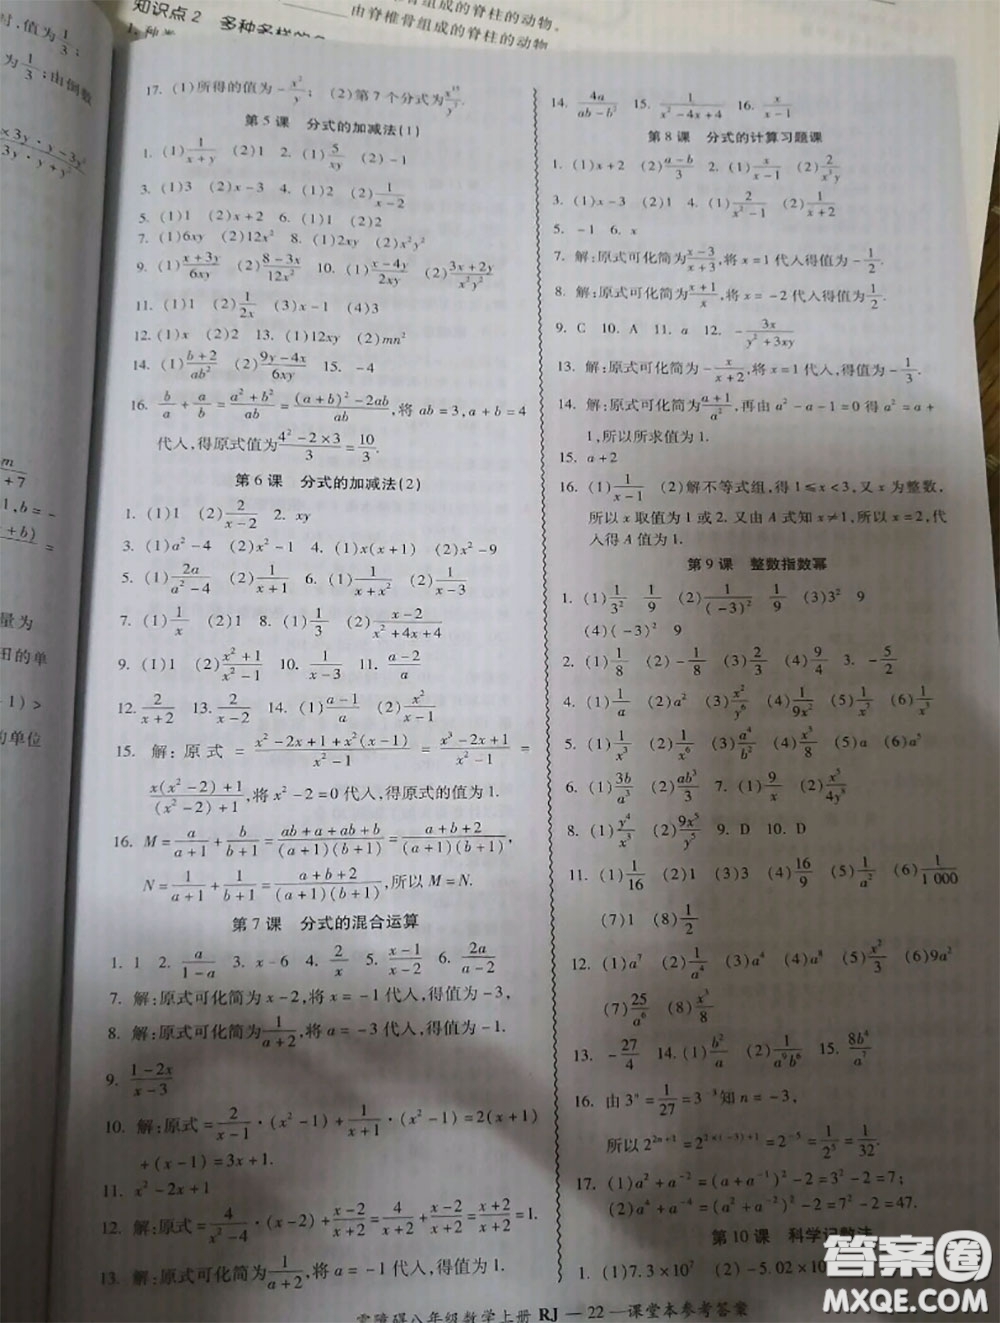 时,值为1/3;
为1/3;由倒数
知识点2 多种多样的
1.种类
由脊椎骨组成的脊柱的动物.
由脊椎骨组成的脊柱的动物
量为
田的单
-1)>
的单位
17. (1)所得的值为-x²/y; (2)第7个分式为x¹⁵/y⁷.
第5课 分式的加减法(1)
1. (1)1/(x+y) (2)1 2. (1)5/(xy) (2)-1
3. (1)3 (2)x-3 4. (1)1/2 (2)1/(x-2)
5. (1)1 (2)x+2 6. (1)1 (2)2
7. (1)6xy (2)12x² 8. (1)2xy (2)x²y²
9. (1)(x+3y)/(6xy) (2)(8-3x)/(12x²) 10. (1)(x-4y)/(2xy) (2)(3x+2y)/(x²y²)
11. (1)1 (2)1/(2x) (3)x-1 (4)3
12. (1)x (2)2 13. (1)12xy (2)mn²
14. (1)(b+2)/(ab²) (2)(9y-4x)/(6xy) 15. -4
16. b/a+a/b=(a²+b²)/(ab)=((a+b)²-2ab)/(ab),将ab=3,a+b=4
代入,得原式值为(4²-2×3)/3=10/3.
第6课 分式的加减法(2)
1. (1)1 (2)2/(x-2) 2. xy
3. (1)a²-4 (2)x²-1 4. (1)x(x+1) (2)x²-9
5. (1)2a/(a²-4) (2)1/(x+1) 6. (1)1/(x+2) (2)1/(x-3)
7. (1)1/x (2)1 8. (1)1/3 (2)(x-2)/(x²+4x+4)
9. (1)1 (2)(x²+1)/(x²-1) 10. 1/(x-3) 11. (a-2)/a
12. 2/(x+2) 13. 2/(x-2) 14. (1)(a-1)/a (2)x²/(x-1)
15. 解:原式=(x²-2x+1+x²(x-1))/(x²-1)=(x³-2x+1)/(x²-1)=
(x(x²-2)+1)/((x²-2)+1),将x²-2=0代入,得原式的值为1.
16. M=a/(a+1)+b/(b+1)=(ab+a+ab+b)/((a+1)(b+1))=(a+b+2)/((a+1)(b+1)),
N=1/(a+1)+1/(b+1)=(a+b+2)/((a+1)(b+1)),所以M=N.
第7课 分式的混合运算
1. 1 2. a/(1-a) 3. x-6 4. 2/x 5. (x-1)/(x-2) 6. 2a/(a-2)
7. 解:原式可化简为x-2,将x=-1代入,得值为-3,
8. 解:原式可化简为1/(a+2),将a=-3代入,得值为-1.
9. (1-2x)/(x-3)
10. 解:原式=2/(x-1)·(x²-1)+1/(x+1)·(x²-1)=2(x+1)
+(x-1)=3x+1.
11. x²-2x+1
12. 解:原式=4/(x²-4)·(x-2)+(x-2)/(x+2)=4/(x+2)+(x-2)/(x+2)=(x+2)/(x+2)=1.
13. 解:原式可化简为1/(a+2),将a=-1代入,得值为1.
14. 4a/(ab-b²) 15. 1/(x²-4x+4) 16. x/(x-1)
第8课 分式的计算习题课
1. (1)x+2 (2)(a-b)/3 2. (1)x/(x-1) (2)2/(x³y)
3. (1)x-3 (2)1 4. (1)2/(x²-1) (2)1/(x+2)
5. -1 6. x
7. 解:原式可化简为(x-3)/(x+3),将x=1代入得值为-1/2.
8. 解:原式可化简为(x+1)/x,将x=-2代入得值为1/2.
9. C 10. A 11. a 12. -3x/(y²+3xy)
13. 解:原式可化简为-x/(x+2),将x=1代入,得值为-1/3.
14. 解:原式可化简为(a+1)/a²,再由a²-a-1=0得a²=a+
1,所以所求值为1.
15. a+2
16. (1)1/(x-1) (2)解不等式组,得1≤x<3,又x为整数,
所以x取值为1或2.又由A式知x≠1,所以x=2,代
入得A值为1.
第9课 整数指数幂
1. (1)1/3² 1/9 (2)1/(-3)² 1/9 (3)3² 9
(4)(-3)² 9
2. (1)1/8 (2)-1/8 (3)2/3 (4)9/4 3. -5/2
4. (1)1/a (2)a² (3)x²/y⁶ (4)1/(9x²) (5)1/x (6)1/a
5. (1)1/x³ (2)1/x⁶ (3)a⁴/b² (4)1/x³ (5)x² (6)a²
6. (1)3b/a³ (2)ab³/3 7. (1)9/x (2)x³/(4y³)
8. (1)y⁴/x³ (2)9x⁵/y⁵ 9. D 10. D
11. (1)1/16 (2)1 (3)1 (4)16/9 (5)1/a² (6)1/1 000
(7)1 (8)1/2
12. (1)a⁷ (2)1/a⁴ (3)a⁴ (4)a⁸ (5)x²/3 (6)9a²
(7)25/a⁶ (8)x³/8
13. -27/4 14. (1)b²/a (2)1/(a⁹b⁶) 15. 8b⁴/a⁷
16. 由3ⁿ=1/27=3⁻³知n=-3,
所以2²ⁿ⁺¹=2²ˣ⁽⁻³⁾⁺¹=2⁻⁵=1/2⁵=1/32.
17. (1)a²+a⁻²=(a+a⁻¹)²-2=3²-2=7;
(2)a⁴+a⁻⁴=(a²+a⁻²)²-2=7²-2=47.
第10课 科学记数法
1. (1)7.3×10⁷ (2)-5.02×10
零障碍八年级数学上册 RJ —22—课堂本参考答案
答案圈
MXQE.COM